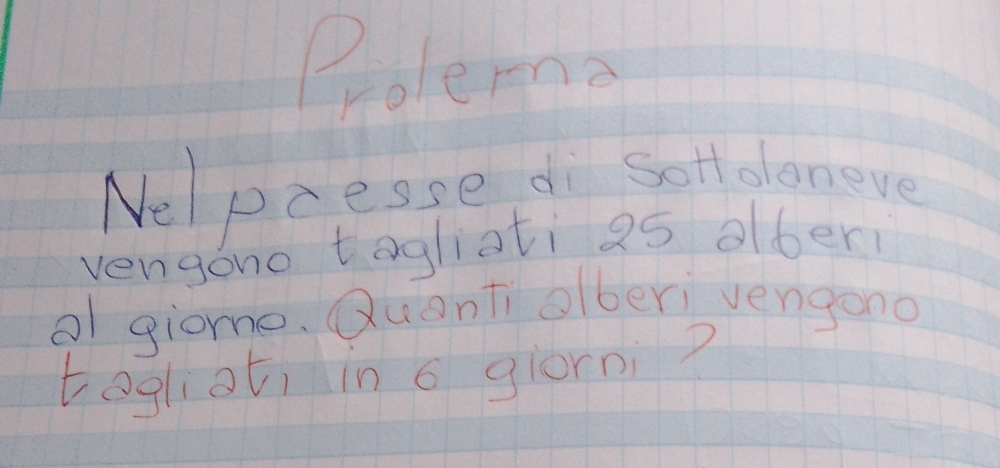 Prolema
Nel paesse di Sottolaneve
vengono tagliati 25 alberi
al giorno. Quanti alberi vengono
tagliati in 6 giorni?